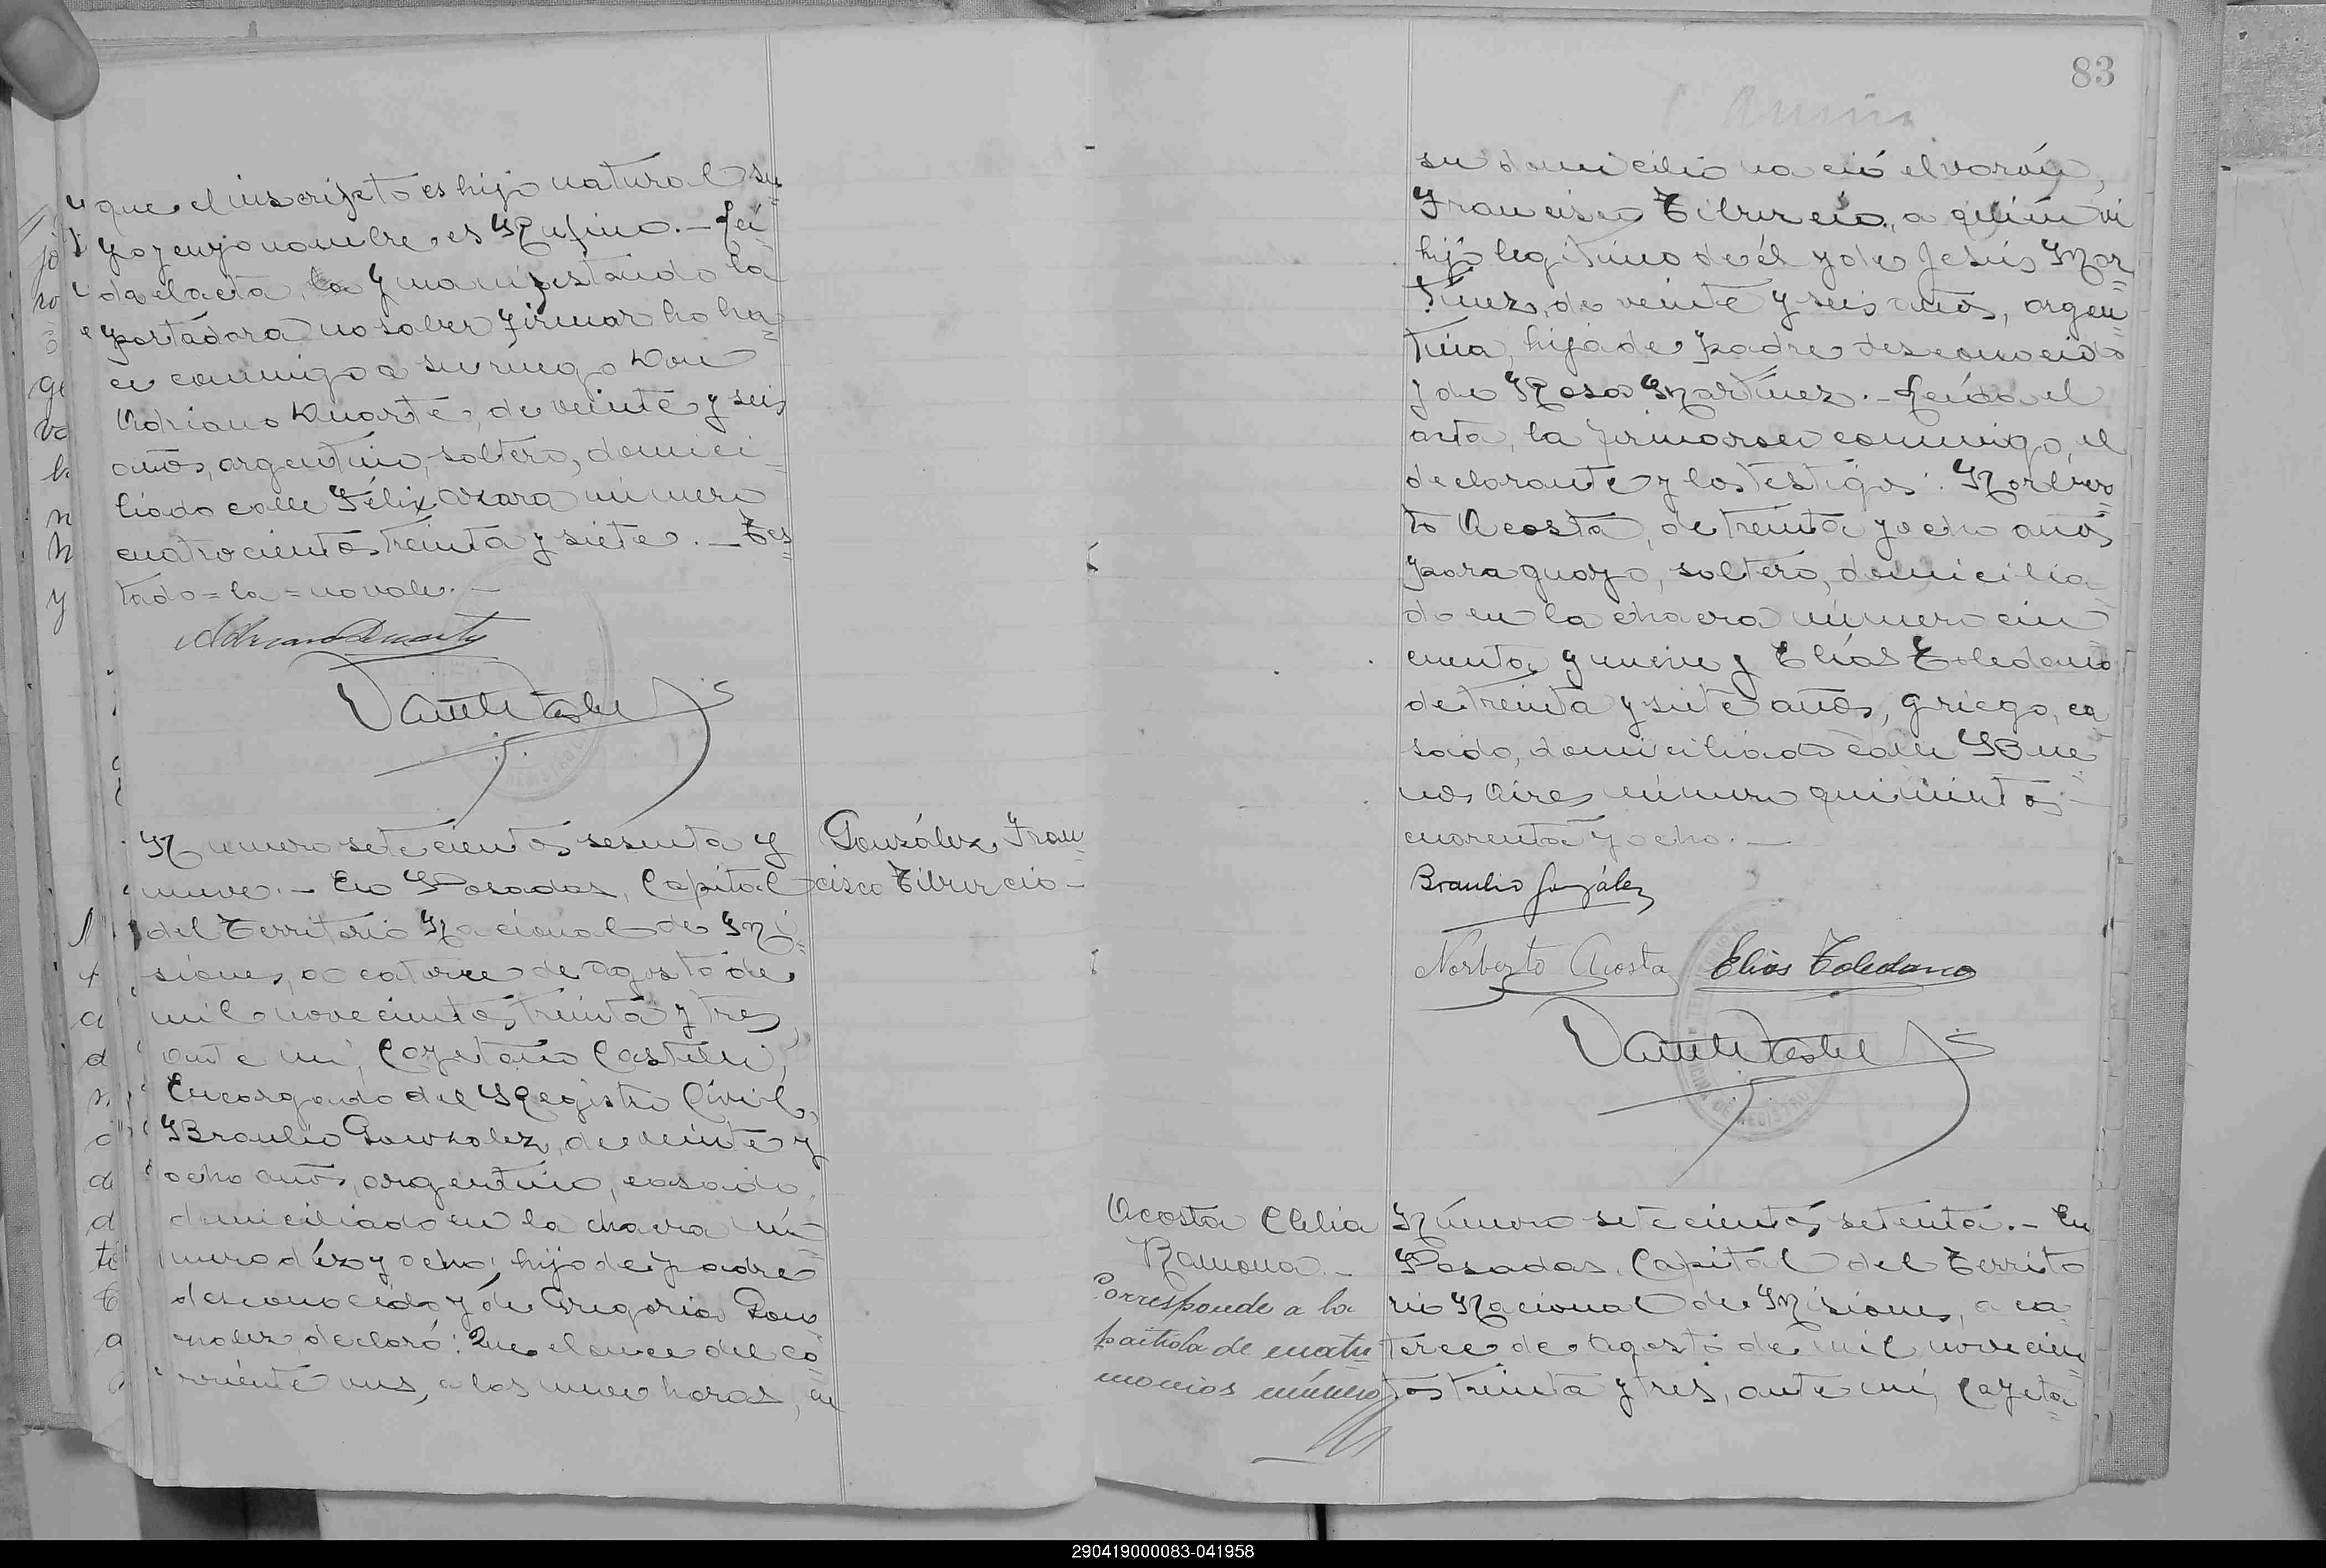 que el inscripto es hijo natural su=
yo y cuyo nombre es Rufino.- Leí=
da el acta, la y manifestando la
portadora no saber firmar lo ha=
ce conmigo a su ruego Don
Adriano Duarte, de veinte y seis
años, argentino, soltero, domici=
liado calle Félix Azara número
cuatrocientos treinta y siete.- Tes=
tado=la=no vale.-
Adriano Duarte
Número setecientos sesenta y
nueve.- En Posadas, Capital
del Territorio Nacional de Mi=
siones, a catorce de agosto de
mil novecientos treinta y tres,
ante mí, Cayetano Castelli,
Encargado del Registro Civil,
Braulio González, de veinte y
ocho años, argentino, casado,
domiciliado en la chacra nú=
mero diez y ocho, hijo de padre
desconocido y de Gregoria Gon=
zalez, declaró: Que el once del co=
rriente mes, a las nueve horas, en
González Fran=
cisco Tiburcio-
83
su domicilio nació el varón,
Francisco Tiburcio, a quien vi
hijo legítimo de él y de Jesús Mar=
tínez, de veinte y seis años, argen=
tina, hija de padre desconocido
y de Rosa Martínez.- Leída el
acta, la firmaron conmigo, el
declarante y los testigos: Norber=
to Acosta, de treinta y ocho años
paraguayo, soltero, domicilia
do en la chacra número cin
cuenta y nueve y Elías Toledano
de treinta y siete años, griego, ca
sado, domiciliado calle Bue=
nos Aires número quinientos
cuarenta y ocho.-
Braulio González
Norberto Acosta Elias Toledano
Acosta Clelia
Ramona.-
Corresponde a la
de matri=
monios número
Número setecientos setenta.- En
Posadas, Capital del Territo
rio Nacional de Misiones, a ca=
torce de agosto de mil novecien
tos treinta y tres, ante mí, Cayeta=
290419000083-041958